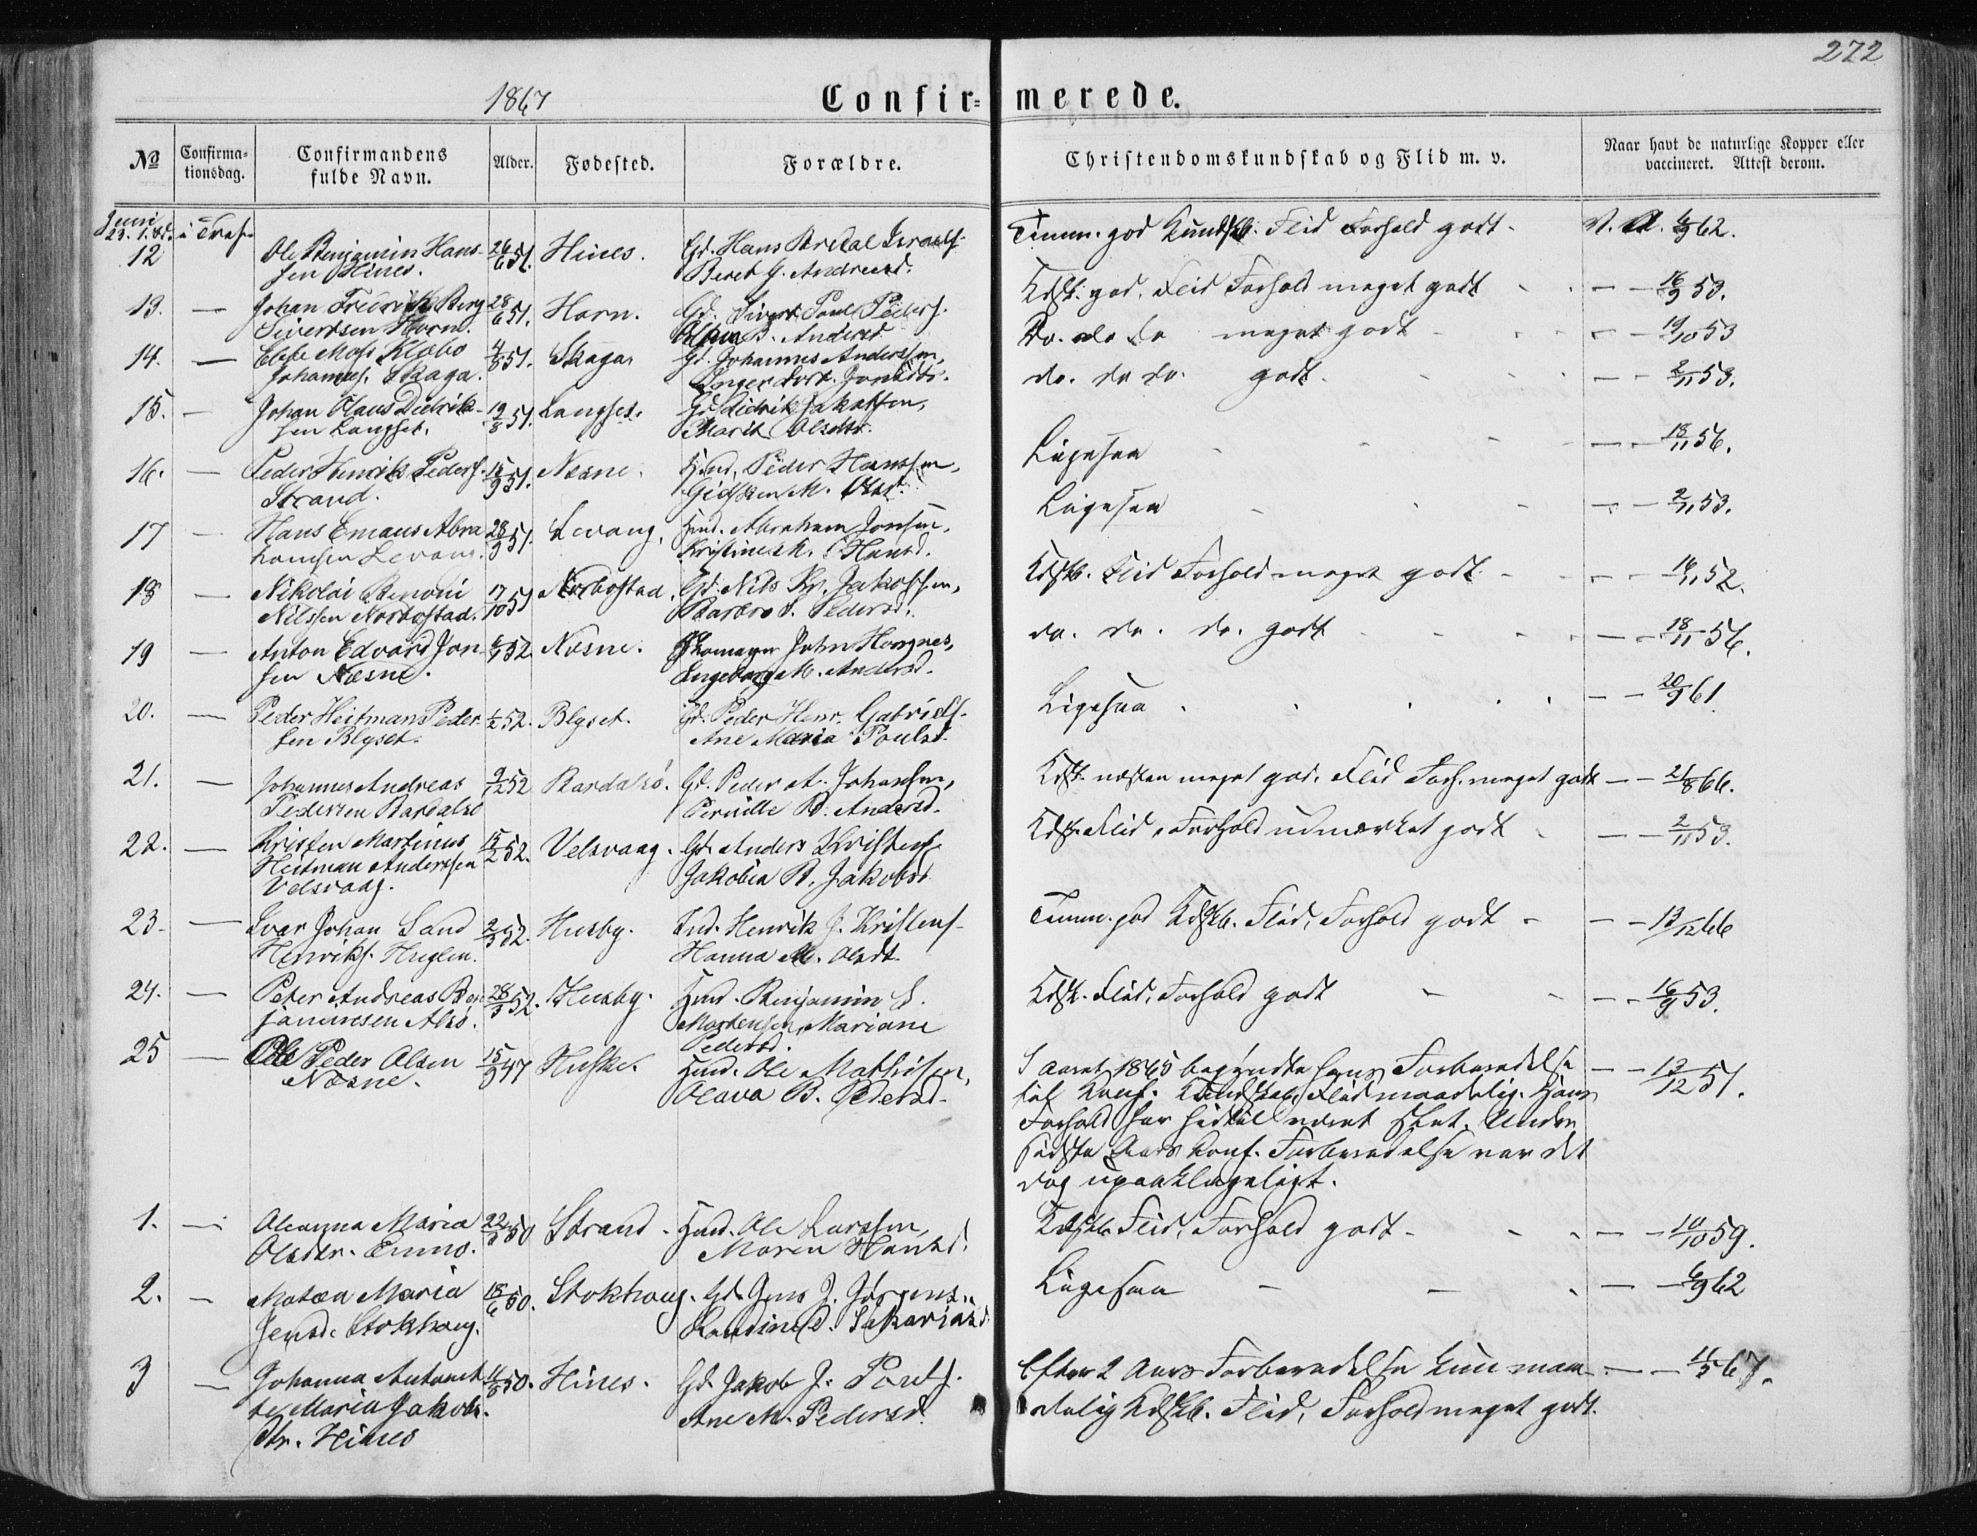 272
1867 Confirmerede.
No Confirmationsdag. Confirmandens fulde Navn. Alder. Fødested. Forældre. Christendomskundskab og Flid m. v. Naar havt de naturlige Kopper eller vaccineret. Attest derom.
Juni 23.
12 Ole Benjamin Hanssen Hines. 26/6 51. Hines. Gd. Hans Bredal Israels. Beret G. Andreasd. Temm. god Kundskb. Flid Forhold godt. V. A. 6/9 62.
13. — Johan Fredrik Berg Sivertsen Horn. 28/6 51. Horn. Gd. Sivert Paul Peders. B. Andersd. Kdsk. god. Flid Forhold meget godt — — 16/9 53.
14. — Johannes. Skaga. 4/8 51. Skaga. Gd. Johannes Anderssen, Inger Do. do do meget godt — — 19/10 53
15. — Johan Olaus Didriksen Langset. 19/8 51. Langset. Gd. Didrik Jakobsen, Marit Olsdtr. do. do do. godt. — — 2/11 53.
16. — Peder Henrik Peders. Strand. 15/9 51. Næsne. Hmd. Peder Hanssen, Gidsken M. Olsd. Ligesaa — — 18/11 56.
17 — Hans Emaus Abrahamsen Levang. 28/9 51. Levang. Hmd. Abraham Jonsen, Kristine M. Hansd. Ligesaa — — 2/11 53.
18 — Nikolai Benoni Nilssen Norbostad. 17/10 51 Norbostad. Gd. Nils Kr. Jakobsen, Barbro S. Pedersd. Kdskb. Flid Forhold meget godt — — 16/11 52.
19 — Anton Edvard Jonsen Næsne. 6/1 52 Næsne. Skomager John Hongnes, Engeborg M. Andersd. do. do. do. godt — — 18/11 56.
20. — Peder Heitman Pedersen Blyset. 1/2 52. Blyset. Gd. Peder Henr. Gabriels. Ane Maria Poulsd. Ligesaa — — 20/9 61.
21. — Johannes Andreas Pedersen Bardalsø 9/2 52 Bardalsø. Gd. Peder A. Johansen, Pernille B. Andersd. Kdsk. næsten meget god. Flid Forh. meget godt — — 21/8 66.
22. — Kristen Martinus Heitman Anderssen Velsvaag. 15/2 52. Velsvaag. Gd. Anders Kristens. Jakobia B. Jakobsd. Kdsk. Flid, Forhold udmærket godt — — 2/11 53.
23. — Ivar Johan Sand Henriks. Huglen. 2/3 52. Husby. Ind. Henrik J. Kristens. Hanna M. Olsdt. Temm. god Kdskb. Flid, Forhold godt — — 12/12 66
24. — Peter Andreas Benjaminsen Alsø. 28/3 52. Husby. Hmd. Benjamin S. Mortensen, Mariane Pedersd. Kdsk. Flid, Forhold godt — — 16/9 53.
25 — Ole Peder Olsen Næsne. 15/9 47 Hmd. Ole Mathisen, Olava B. Pedersd. I Aaret 1865 begyndte hans Forberedelse — — 12/12 51.
til Konf. Kundskab, Flid maadelig. Hans
Forhold har hidtil været slet. Under
sidste Aars Konf. Forberedelse var det
dog upaaklageligt.
1. — Oleanna Maria Olsdtr. 22/3 50 Strand. Hmd. Ole Larssen, Maren Hansd. Kdskb. Flid, Forhold godt — — 10/10 59.
2. — Matæa Maria Jensd. Stokhaug. 18/6 50. Stokhaug. Gd. Jens J. Jørgens., Sakariasd. Ligesaa — — 6/9 62
3 — Johanna Antonette Maria Jakobsdtr. Hines 11/8 50. Hines. Gd. Jakob J. Pouls. Ane M. Pedersd. Efter 2 Aars Forberedelse kun maadelig Kdskb. Flid, Forhold meget godt. — — 11/5 67.